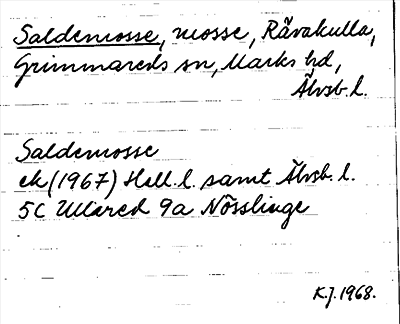 Saldemosse, mosse, Rävakulla,
Grimmareds sn, Marks hd,
Älvsb. l.
Saldemosse
ek (1967) Hall. l. samt Älvsb. l.
5C Ullared 9a Nösslinge
K.J. 1968.